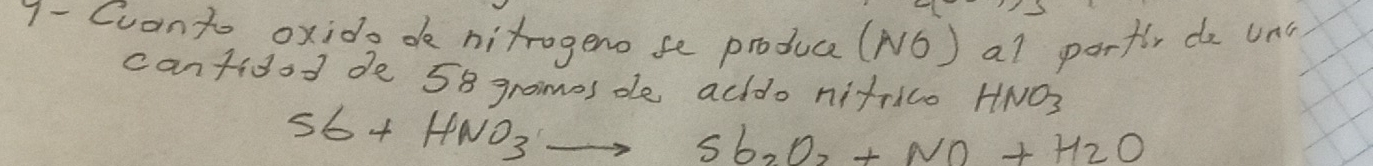 9- Cuanto oxido de nitrogeno se produce (NO) al partir de una
cantidad de 58 gramos de acido nitrico HNO3
Sb + HNO3 → Sb2O3 + NO + H2O